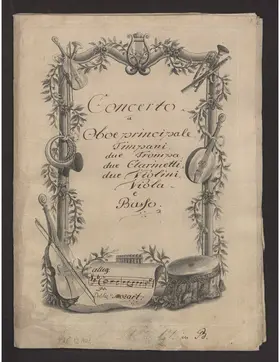 Concerto
a
Oboe principale
Timpani
due Trompa
due Clarinetti
due Violini
Viola
e
Basso.
alleg
mozart
in B.